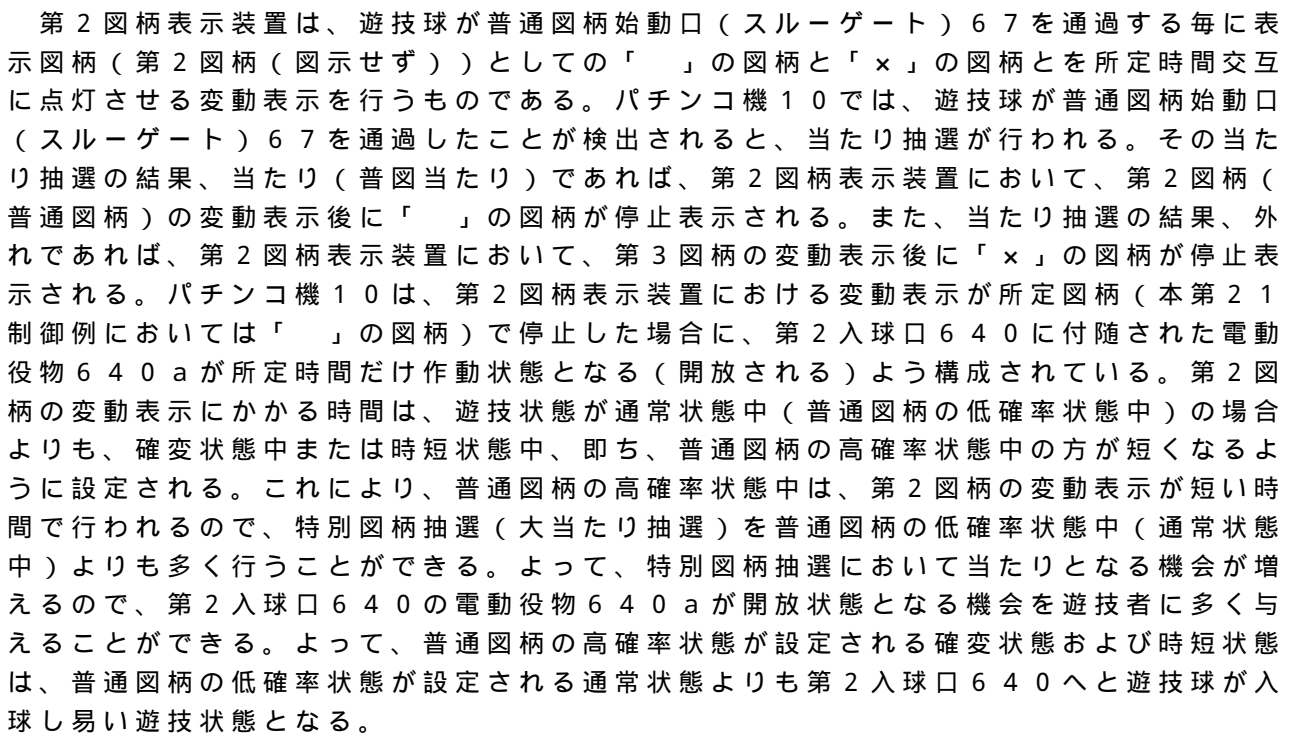 第２図柄表示装置は、遊技球が普通図柄始動口（スルーゲート）６７を通過する毎に表
示図柄（第２図柄（図示せず））としての「　」の図柄と「×」の図柄とを所定時間交互
に点灯させる変動表示を行うものである。パチンコ機１０では、遊技球が普通図柄始動口
（スルーゲート）６７を通過したことが検出されると、当たり抽選が行われる。その当た
り抽選の結果、当たり（普図当たり）であれば、第２図柄表示装置において、第２図柄（
普通図柄）の変動表示後に「　」の図柄が停止表示される。また、当たり抽選の結果、外
れであれば、第２図柄表示装置において、第３図柄の変動表示後に「×」の図柄が停止表
示される。パチンコ機１０は、第２図柄表示装置における変動表示が所定図柄（本第２１
制御例においては「　」の図柄）で停止した場合に、第２入球口６４０に付随された電動
役物６４０ａが所定時間だけ作動状態となる（開放される）よう構成されている。第２図
柄の変動表示にかかる時間は、遊技状態が通常状態中（普通図柄の低確率状態中）の場合
よりも、確変状態中または時短状態中、即ち、普通図柄の高確率状態中の方が短くなるよ
うに設定される。これにより、普通図柄の高確率状態中は、第２図柄の変動表示が短い時
間で行われるので、特別図柄抽選（大当たり抽選）を普通図柄の低確率状態中（通常状態
中）よりも多く行うことができる。よって、特別図柄抽選において当たりとなる機会が増
えるので、第２入球口６４０の電動役物６４０ａが開放状態となる機会を遊技者に多く与
えることができる。よって、普通図柄の高確率状態が設定される確変状態および時短状態
は、普通図柄の低確率状態が設定される通常状態よりも第２入球口６４０へと遊技球が入
球し易い遊技状態となる。